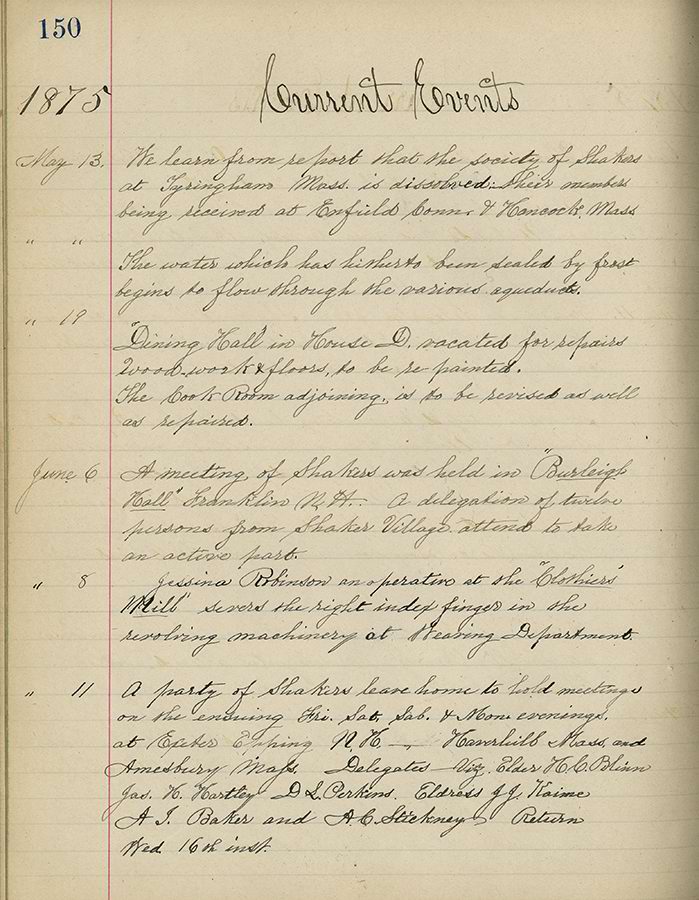 150
1875 Current Events
May 13. We learn from report that the society of Shakers
at Tyringham Mass. is dissolved; their members
being received at Enfield Conn. & Hancock, Mass
" " The water which has hitherto been sealed by frost
begins to flow through the various aqueducts.
" 19 "Dining Hall" in House D. vacated for repairs
Wood-work & floors, to be re painted.
The Cook Room adjoining, is to be revised as well
as repaired.
June 6 A meeting of Shakers was held in "Burleigh
Hall" Franklin N.H. — A delegation of twelve
persons from Shaker Village attend to take
an active part.
" 8 Jessina Robinson an operative at the "Clothiers'
Mill" severs the right index finger in the
revolving machinery at Weaving Department.
" 11 A party of Shakers leave home to hold meetings
on the ensuing Fri. Sat. Sab. & Mon. evenings.
at Exeter Epping N.H. — Haverhill Mass. and
Amesbury Mass. Delegates — Viz. Elder H.C. Blinn
Jas. H. Hartley D.S. Perkins. Eldress J.J. Kaime
A. J. Baker and A.C. Stickney, Return
Wed. 16th inst.